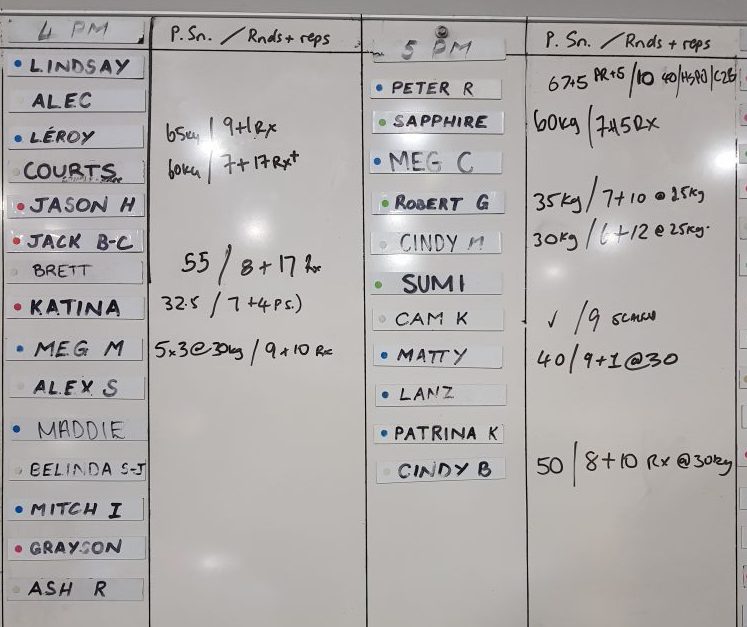 4 PM P. Sn. / Rnds + reps
LINDSAY
ALEC
LEROY 65kg / 9+1 Rx
COURTS 60kg / 7+17 Rx+
JASON H
JACK B-C
BRETT 55 / 8+17 Rx
KATINA 32.5 / 7+4 P.S.)
MEG M 5x3@30kg / 9+10 Rx
ALEX S
MADDIE
BELINDA S-J
MITCH I
GRAYSON
ASH R
5 PM P. Sn. / Rnds + reps
PETER R 67+5 PR+5 / 10 40/HSPU/C2B
SAPPHIRE 60kg / 7+15 Rx
MEG C
ROBERT G 35kg / 7+10 @ 25kg
CINDY M 30kg / 6+12 @ 25kg.
SUMI
CAM K ✓ / 9
MATTY 40 / 9+1 @30
LANZ
PATRINA K
CINDY B 50 / 8+10 Rx @30kg